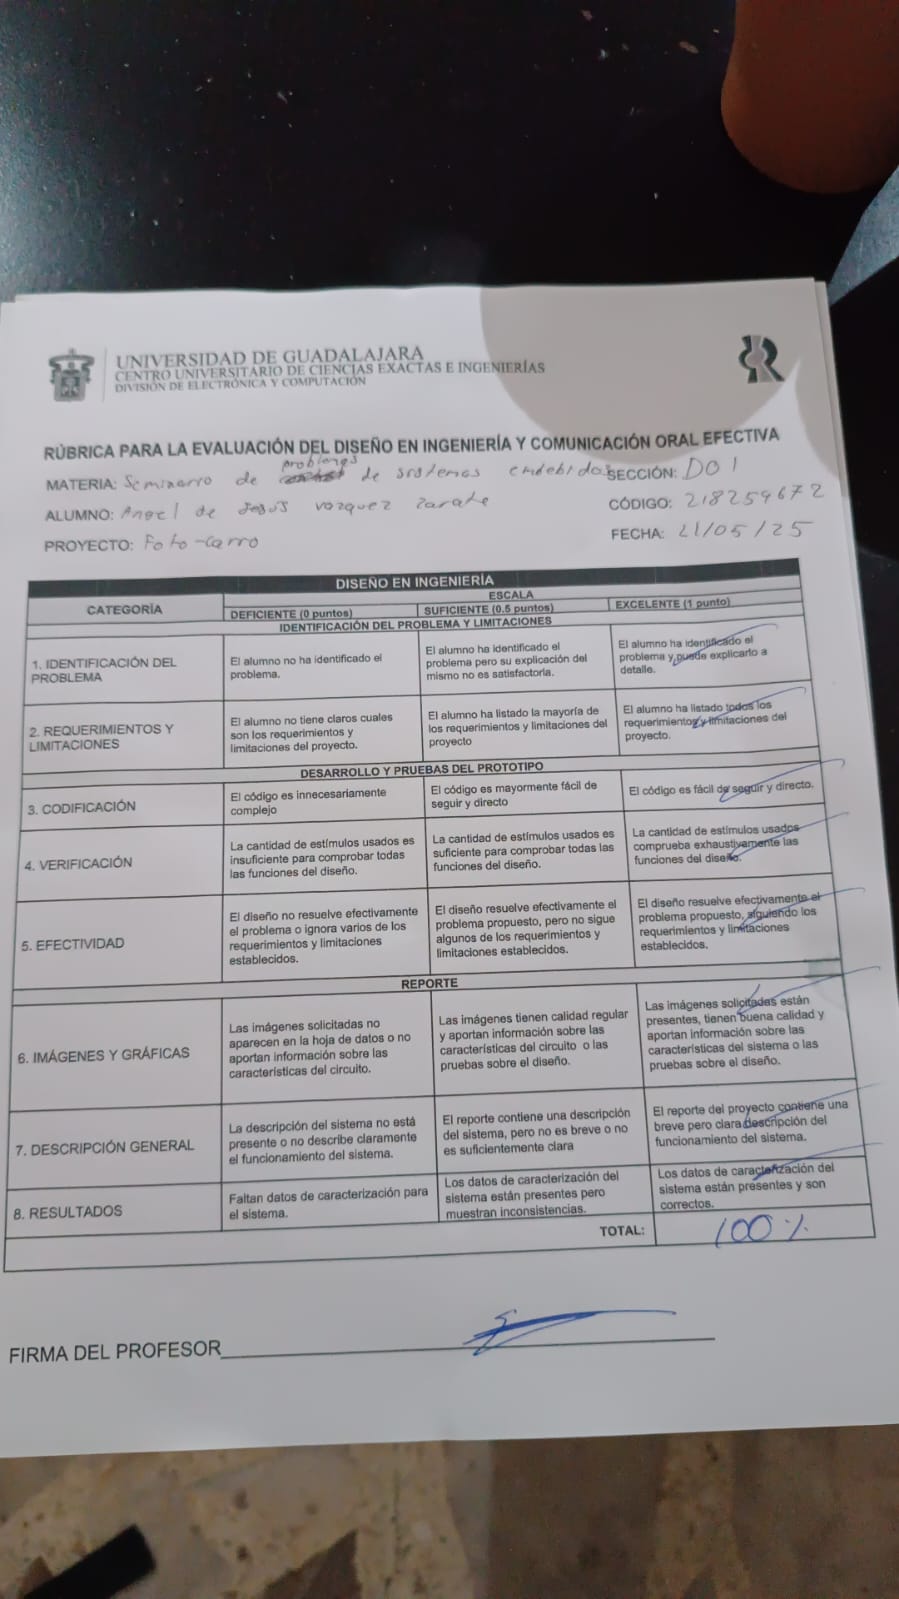 UNIVERSIDAD DE GUADALAJARA
CENTRO UNIVERSITARIO DE CIENCIAS EXACTAS E INGENIERÍAS
DIVISIÓN DE ELECTRÓNICA Y COMPUTACIÓN
RÚBRICA PARA LA EVALUACIÓN DEL DISEÑO EN INGENIERÍA Y COMUNICACIÓN ORAL EFECTIVA
MATERIA: Seminario de problemas de sistemas embebidos SECCIÓN: D01
ALUMNO: Angel de Jesus Vazquez Zarate CÓDIGO: 218259672
PROYECTO: Foto-Carro FECHA: 21/05/25
DISEÑO EN INGENIERÍA
CATEGORÍA
ESCALA
DEFICIENTE (0 puntos) SUFICIENTE (0.5 puntos) EXCELENTE (1 punto)
IDENTIFICACIÓN DEL PROBLEMA Y LIMITACIONES
1. IDENTIFICACIÓN DEL
PROBLEMA
El alumno no ha identificado el
problema.
El alumno ha identificado el
problema pero su explicación del
mismo no es satisfactoria.
El alumno ha identificado el
problema y puede explicarlo a
detalle.
2. REQUERIMIENTOS Y
LIMITACIONES
El alumno no tiene claros cuales
son los requerimientos y
limitaciones del proyecto.
El alumno ha listado la mayoría de
los requerimientos y limitaciones del
proyecto
El alumno ha listado todos los
requerimientos y limitaciones del
proyecto.
DESARROLLO Y PRUEBAS DEL PROTOTIPO
3. CODIFICACIÓN
El código es innecesariamente
complejo
El código es mayormente fácil de
seguir y directo
El código es fácil de seguir y directo.
4. VERIFICACIÓN
La cantidad de estímulos usados es
insuficiente para comprobar todas
las funciones del diseño.
La cantidad de estímulos usados es
suficiente para comprobar todas las
funciones del diseño.
La cantidad de estímulos usados
comprueba exhaustivamente las
funciones del diseño.
5. EFECTIVIDAD
El diseño no resuelve efectivamente
el problema o ignora varios de los
requerimientos y limitaciones
establecidos.
El diseño resuelve efectivamente el
problema propuesto, pero no sigue
algunos de los requerimientos y
limitaciones establecidos.
El diseño resuelve efectivamente el
problema propuesto, siguiendo los
requerimientos y limitaciones
establecidos.
REPORTE
6. IMÁGENES Y GRÁFICAS
Las imágenes solicitadas no
aparecen en la hoja de datos o no
aportan información sobre las
características del circuito.
Las imágenes tienen calidad regular
y aportan información sobre las
características del circuito o las
pruebas sobre el diseño.
Las imágenes solicitadas están
presentes, tienen buena calidad y
aportan información sobre las
características del sistema o las
pruebas sobre el diseño.
7. DESCRIPCIÓN GENERAL
La descripción del sistema no está
presente o no describe claramente
el funcionamiento del sistema.
El reporte contiene una descripción
del sistema, pero no es breve o no
es suficientemente clara
El reporte del proyecto contiene una
breve pero clara descripción del
funcionamiento del sistema.
8. RESULTADOS
Faltan datos de caracterización para
el sistema.
Los datos de caracterización del
sistema están presentes pero
muestran inconsistencias.
Los datos de caracterización del
sistema están presentes y son
correctos.
TOTAL: 100 %
FIRMA DEL PROFESOR